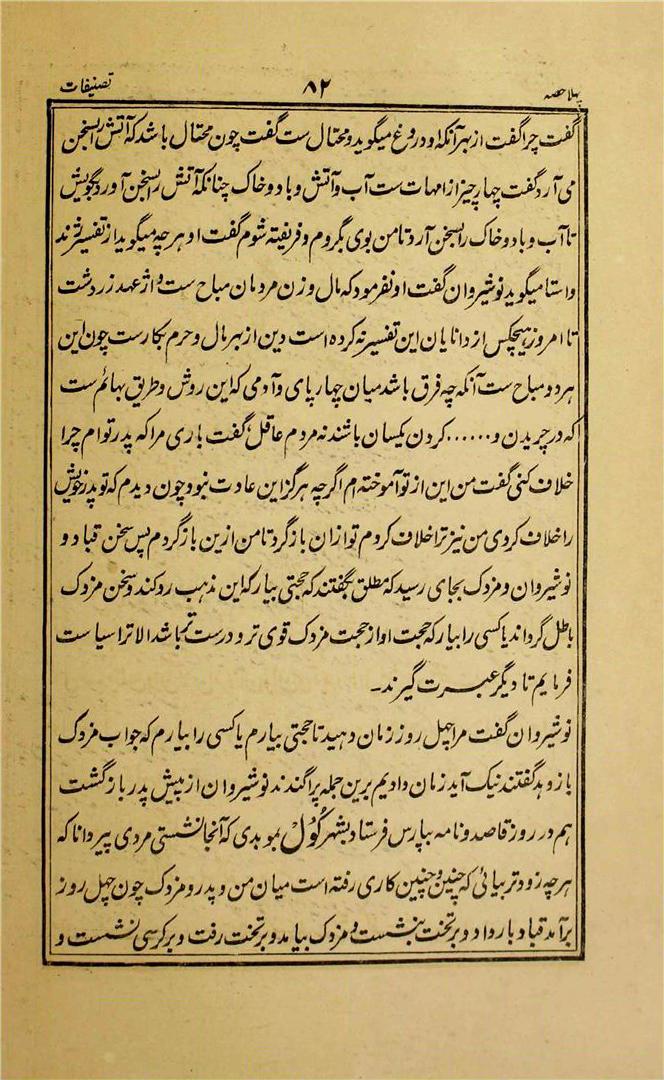 پہلا حصہ ۸۲ تصنیفات
گفت چرا گفت از بهر آنکه او دروغ میگوید و محتال ست گفت چون محتال باشد که آتش را بسخن
می آرد گفت چهار چیز از امهات ست آب و آتش و باد و خاک چنانکه آتش را بسخن آورد بگویش
تا آب و باد و خاک را بسخن آرد تا من بوی بگروم و فریفته شوم گفت او هرچه میگوید از تفسیر ژند
و استا میگوید نوشیروان گفت او نفرمود که مال و زن مردمان مباح ست و از عهد زردشت
تا امروز هیچکس از دانایان این تفسیر نه کرده است دین از بهر مال و حرم بکارست چون این
هر دو مباح ست آنکه چه فرق باشد میان چهارپای و آدمی که این روش و طریق بهائم ست
که در چریدن و...... کردن یکسان باشند نه مردم عاقل، گفت باری مرا که پدر توام چرا
خلاف کنی گفت من این از تو آموخته ام اگرچه هرگز این عادت نبود چون دیدم که تو پدر خویش
را خلاف کردی من نیز ترا خلاف کردم تو ازان بازگرد تا من ازین بازگردم پس سخن قباد و
نوشیروان و مزدک بجای رسید که مطلق بگفتند که حجتی بیار که این مذهب رد کند و سخن مزدک
باطل گرداند یا کسی را بیار که حجت او از حجت مزدک قوی تر و درست تر باشد الا ترا سیاست
فرمایم تا دیگر عبرت گیرند۔
نوشیروان گفت مرا چهل روز زمان دهید تا حجتی بیارم یا کسی را بیارم که جواب مزدک
باز دهد گفتند نیک آید زمان دادیم برین جمله پراگندند نوشیروان از پیش پدر بازگشت
هم در روز قاصد و نامه بپارس فرستاد بشهر کُوْل بموبدی که آنجا نشستی مردی پیر دانا که
هرچه زودتر بیائی که چنین و چنین کاری رفته است میان من و پدر و مزدک چون چهل روز
برآمد قباد بار داد و بر تخت بنشست و مزدک بیامد و بر تخت رفت و بر کرسی نشست و